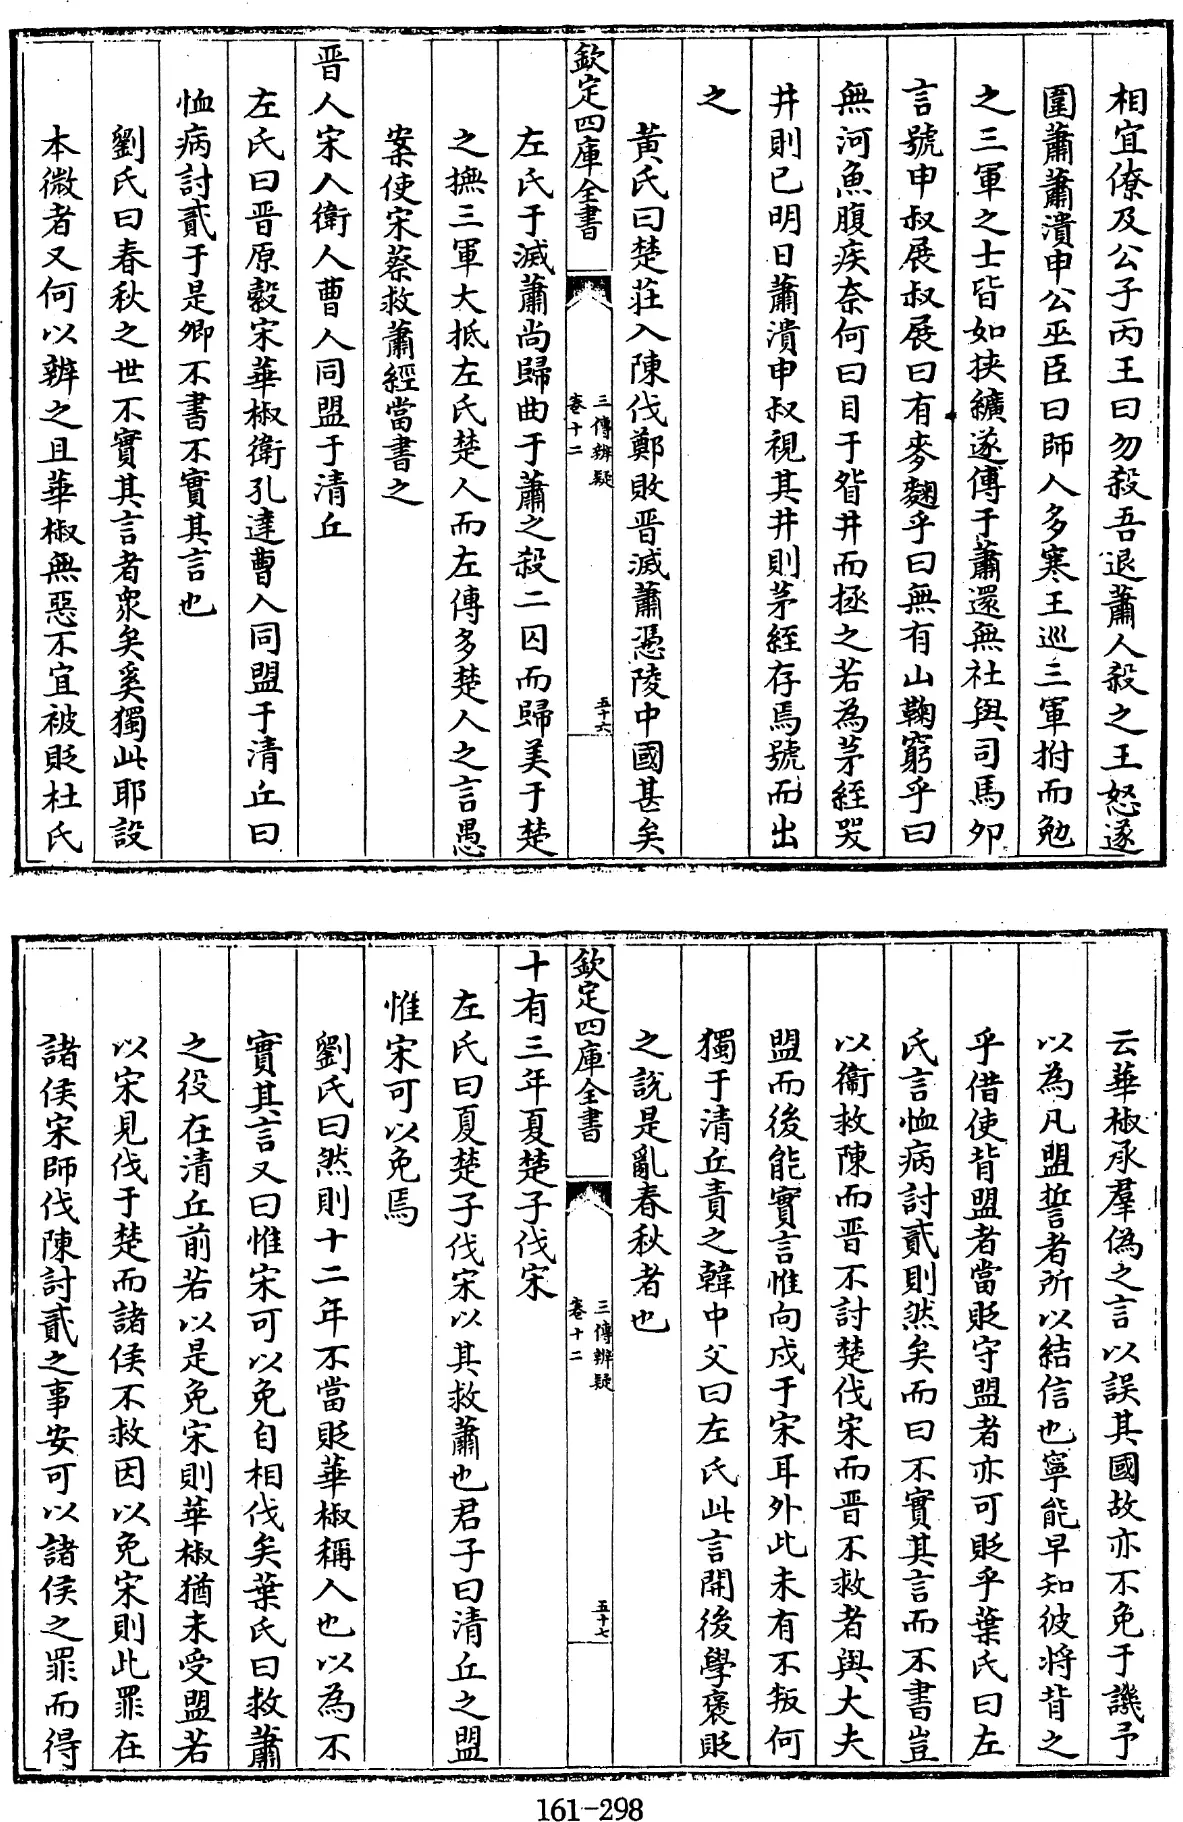 相宜僚及公子丙王曰勿殺吾退蕭人殺之王怒遂
圍蕭蕭潰申公巫臣曰師人多寒王巡三軍拊而勉
之三軍之士皆如挾纊遂傅于蕭還無社與司馬卯
言號申叔展叔展曰有麥麴乎曰無有山鞠窮乎曰
無河魚腹疾奈何曰目于眢井而拯之若為茅絰哭
井則已明日蕭潰申叔視其井則茅絰存焉號而出
之
黄氏曰楚莊入陳伐鄭敗晋滅蕭憑陵中國甚矣
欽定四庫全書
三傳辨疑
卷十二
五十六
左氏于滅蕭尚歸曲于蕭之殺二囚而歸美于楚
之撫三軍大抵左氏楚人而左傳多楚人之言愚
案使宋蔡救蕭經當書之
晋人宋人衛人曹人同盟于清丘
左氏曰晋原縠宋華椒衛孔達曹人同盟于清丘曰
恤病討貳于是卿不書不實其言也
劉氏曰春秋之世不實其言者衆矣奚獨此耶設
本微者又何以辨之且華椒無惡不宜被貶杜氏
云華椒承羣偽之言以誤其國故亦不免于譏予
以為凡盟誓者所以結信也寧能早知彼將背之
乎借使背盟者當貶守盟者亦可貶乎葉氏曰左
氏言恤病討貳則然矣而曰不實其言而不書豈
以衛救陳而晋不討楚伐宋而晋不救者與大夫
盟而後能實言惟向戍于宋耳外此未有不叛何
獨于清丘責之韓中父曰左氏此言開後學褒貶
之說是亂春秋者也
欽定四庫全書
三傳辨疑
卷十二
五十七
十有三年夏楚子伐宋
左氏曰夏楚子伐宋以其救蕭也君子曰清丘之盟
惟宋可以免焉
劉氏曰然則十二年不當貶華椒稱人也以為不
實其言又曰惟宋可以免自相伐矣葉氏曰救蕭
之役在清丘前若以是免宋則華椒猶未受盟若
以宋見伐于楚而諸侯不救因以免宋則此罪在
諸侯宋師伐陳討貳之事安可以諸侯之罪而得
161-298